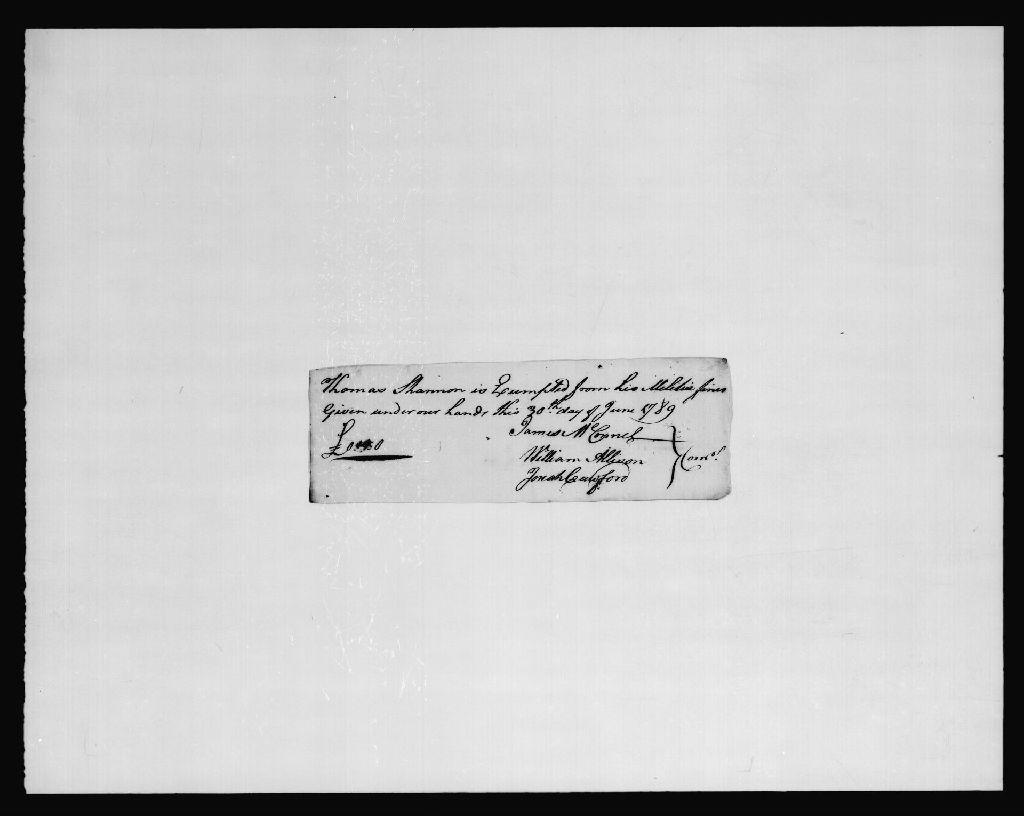 Thomas Shannon is Exempted from his Militia fines
Given under our hands this 30th day of June 1789
James McConnel
£
William Allison
Comrs.
Jonah Crawford